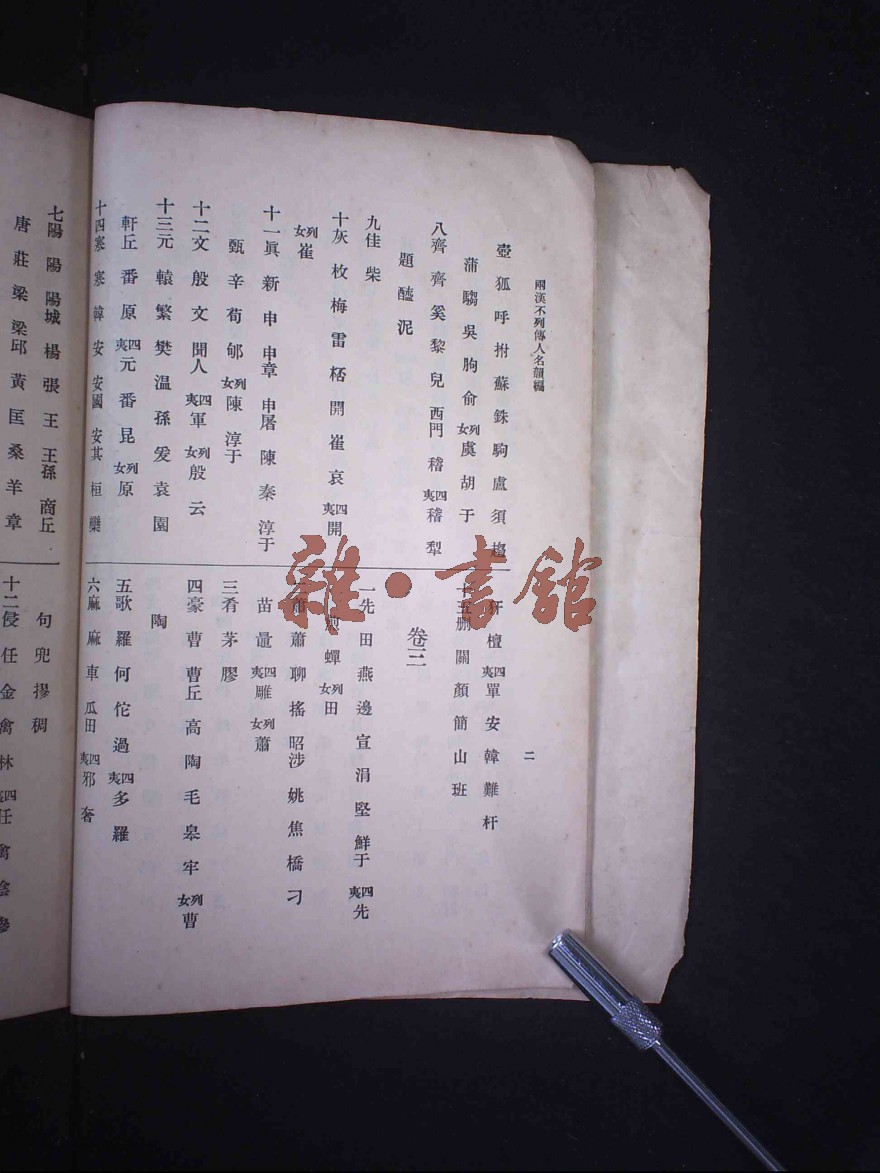 兩漢不列傳人名韻編
壺 狐 呼 拊 蘇 銖 駒 盧 須 趨
蒲 騶 吳 朐 俞 列女 虞 胡 于
八齊 齊 奚 黎 兒 西門 稽 四夷 稽 犁
題 醯 泥
九佳 柴
十灰 枚 梅 雷 栝 開 崔 哀 四夷 開
列女 崔
十一眞 新 申 申章 申屠 陳 秦 淳于
甄 辛 荀 郇 列女 陳 淳于
十二文 殷 文 聞人 四夷 軍 列女 殷 云
十三元 轅 繁 樊 溫 孫 爰 袁 園
軒丘 番 原 四夷 元 番 昆 列女 原
十四寒 寒 韓 安 安國 安其 桓 欒
邗 檀 四夷 單 安 韓 難 杆
十五刪 關 顏 簡 山 班
卷三
一先 田 燕 邊 宣 涓 堅 鮮于 四夷 先
蟬 列女 田
蕭 蕭 聊 搖 昭涉 姚 焦 橋 刁
苗 鼂 四夷 雕 列女 蕭
三肴 茅 膠
四豪 曹 曹丘 高 陶 毛 皋 牢 列女 曹
陶
五歌 羅 何 佗 過 四夷 多 羅
六麻 麻 車 瓜田 四夷 邪 奢
二
七陽 陽 陽城 楊 張 王 王孫 商丘
唐 莊 梁 梁邱 黃 匡 桑 羊 章
句 兜 摎 稠
十二侵 任 金 禽 林 四夷 任 禽 陰
雜·書館